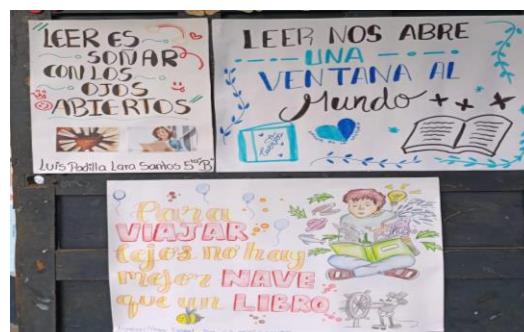 LEER ES
SOÑAR
CON LOS
OJOS
ABIERTOS
Luis Padilla Lara Santos 5to "B"
LEER NOS ABRE
UNA
VENTANA AL
Mundo
Para
VIAJAR
lejos no hay
mejor NAVE
que un LIBRO